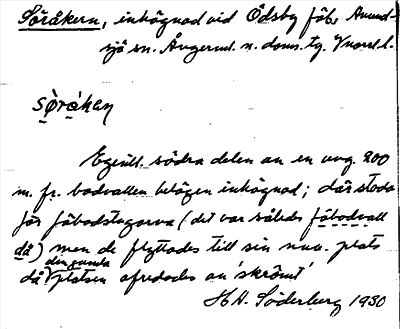 Söråkern, inhägnad vid Ödsby fäb. Anund-
sjö sn. Ångerml. n. doms.tg. Vnorrl. l.
sö̀rà́kaņ
Egentl. södra delen av en ung. 200
m. fr. bodvallen belägen inhägnad; där stodo
förr fäbodstugorna (det var således fäbodvall
då) men de flyttades till sin nuv. plats
då den gamla platsen ofredades av 'skrömt'
H.H. Söderberg 1930